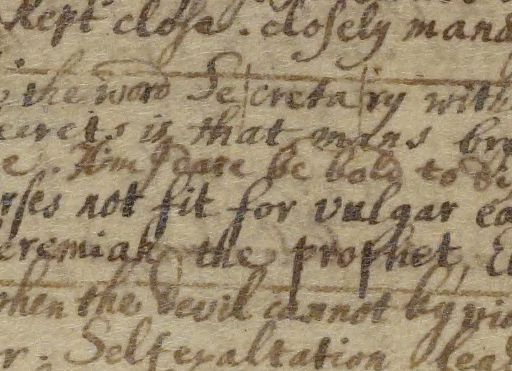 Kept close. closely mana
the word Se|creta|ry with
secrets is that mans br
e. Him I dare be bold to
rses not fit for vulgar ea
eremiah the prophet
when the devil cannot by vio
r. Selfexaltation lea